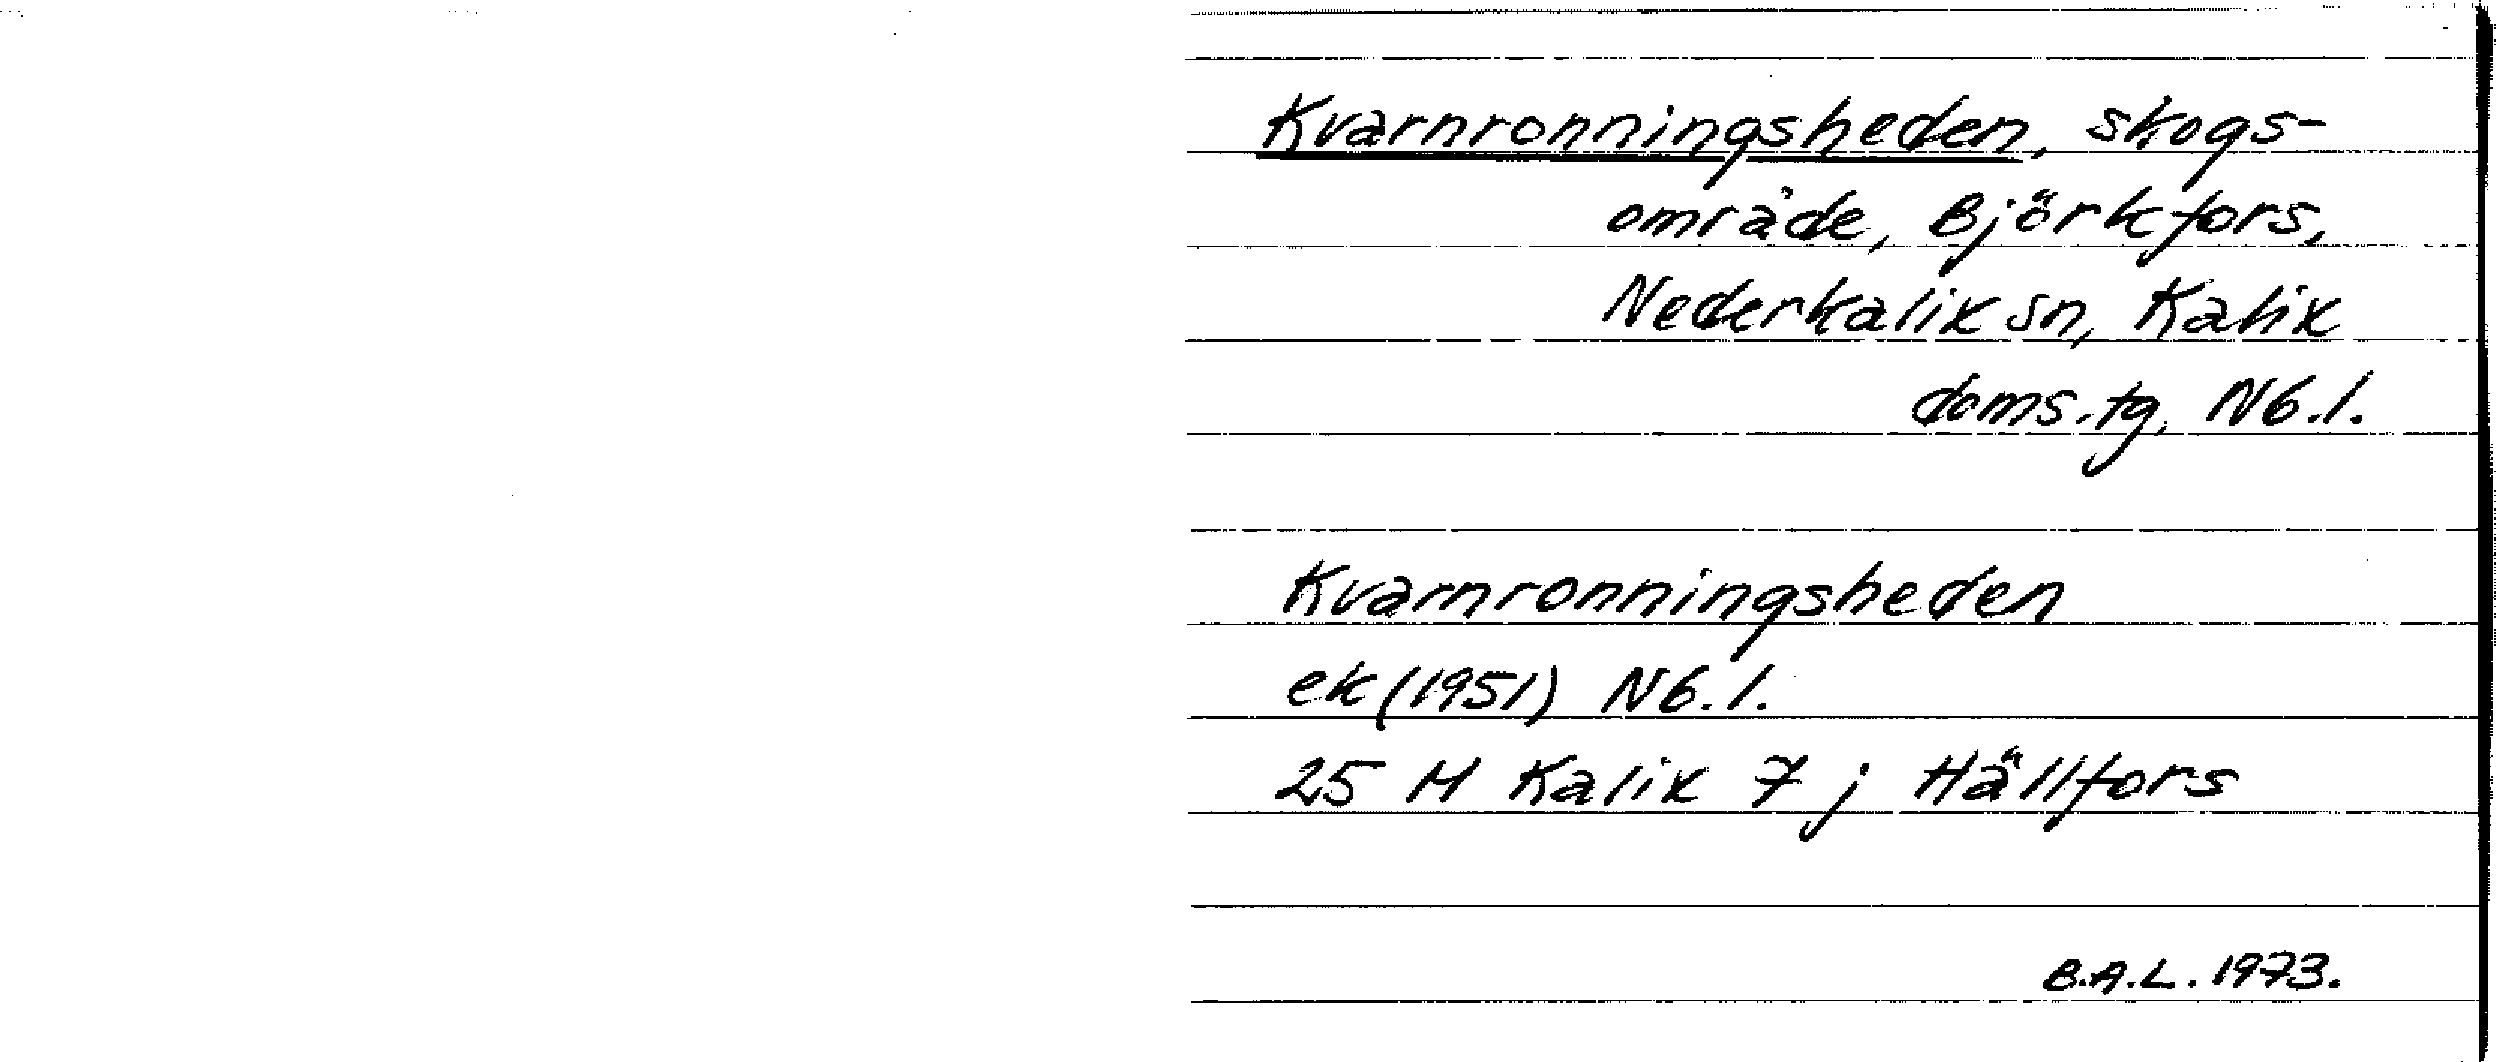 Kvarnronningsheden, skogs-
område, Björkfors,
Nederkalix sn, Kalix
doms.tg, Nb.l.
Kvarnronningsheden
ek (1951) Nb.l.
25 M Kalix 7 j Hällfors
B.A.L. 1973.